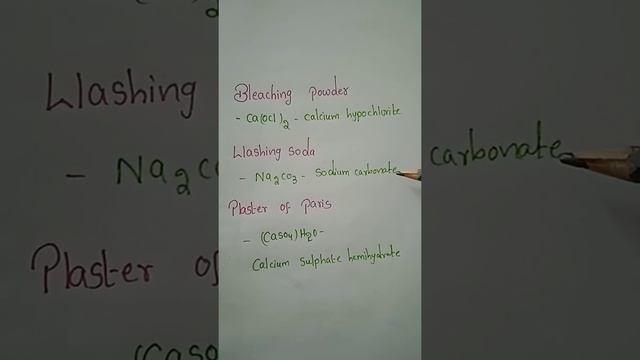 Bleaching powder
- Ca(ocl)2 - calcium hypochlorite
Washing soda
- Na2co3 - sodium carbonate
Plaster of Paris
- (Caso4) H2o -
Calcium sulphate hemihydrate